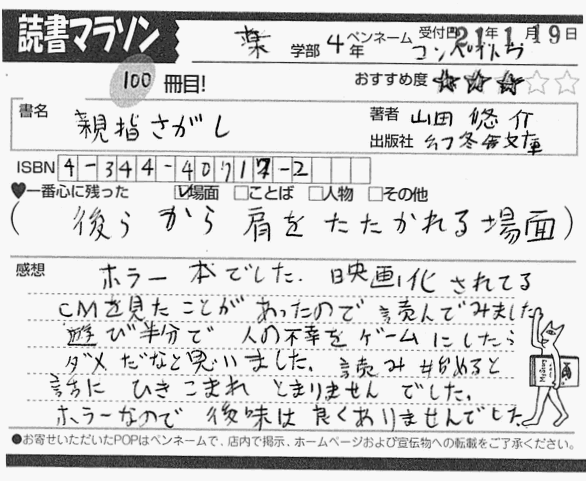 読書マラソン
薬 学部 4年 ペンネーム コンペイトウ 受付日 21年1月19日
100 冊目! おすすめ度 ★★★☆☆
書名 親指さがし
著者 山田悠介
出版社 幻冬舎文庫
ISBN 4-344-40717-2
♥一番心に残った ☑場面 □ことば □人物 □その他
(後ろから肩をたたかれる場面)
感想 ホラー本でした。映画化されてる
CMを見たことがあったので読んでみました
遊び半分で人の不幸をゲームにしたら
ダメだなと思いました。読み始めると
話にひきこまれとまりませんでした。
ホラーなので後味は良くありませんでした
●お寄せいただいたPOPはペンネームで、店内で掲示、ホームページおよび宣伝物への転載をご了承ください。